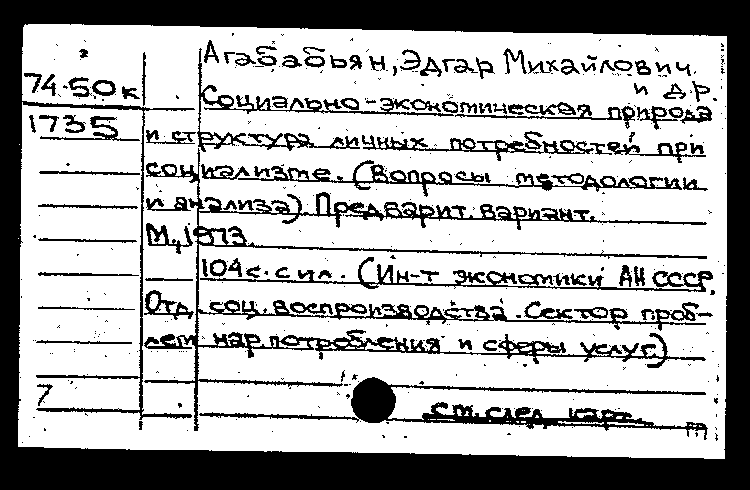 Агабабьян, Эдгар Михайлович
и др.
74-50к
1735
Социально-экономическая природа
и структура личных потребностей при
социализме. (Вопросы методологии
и анализа). Предварит. вариант.
М., 1973.
104 с. с ил. (Ин-т экономики АН СССР.
Отд. соц. воспроизводства. Сектор проб-
лем нар. потребления и сферы услуг)
7
см. след. карт.